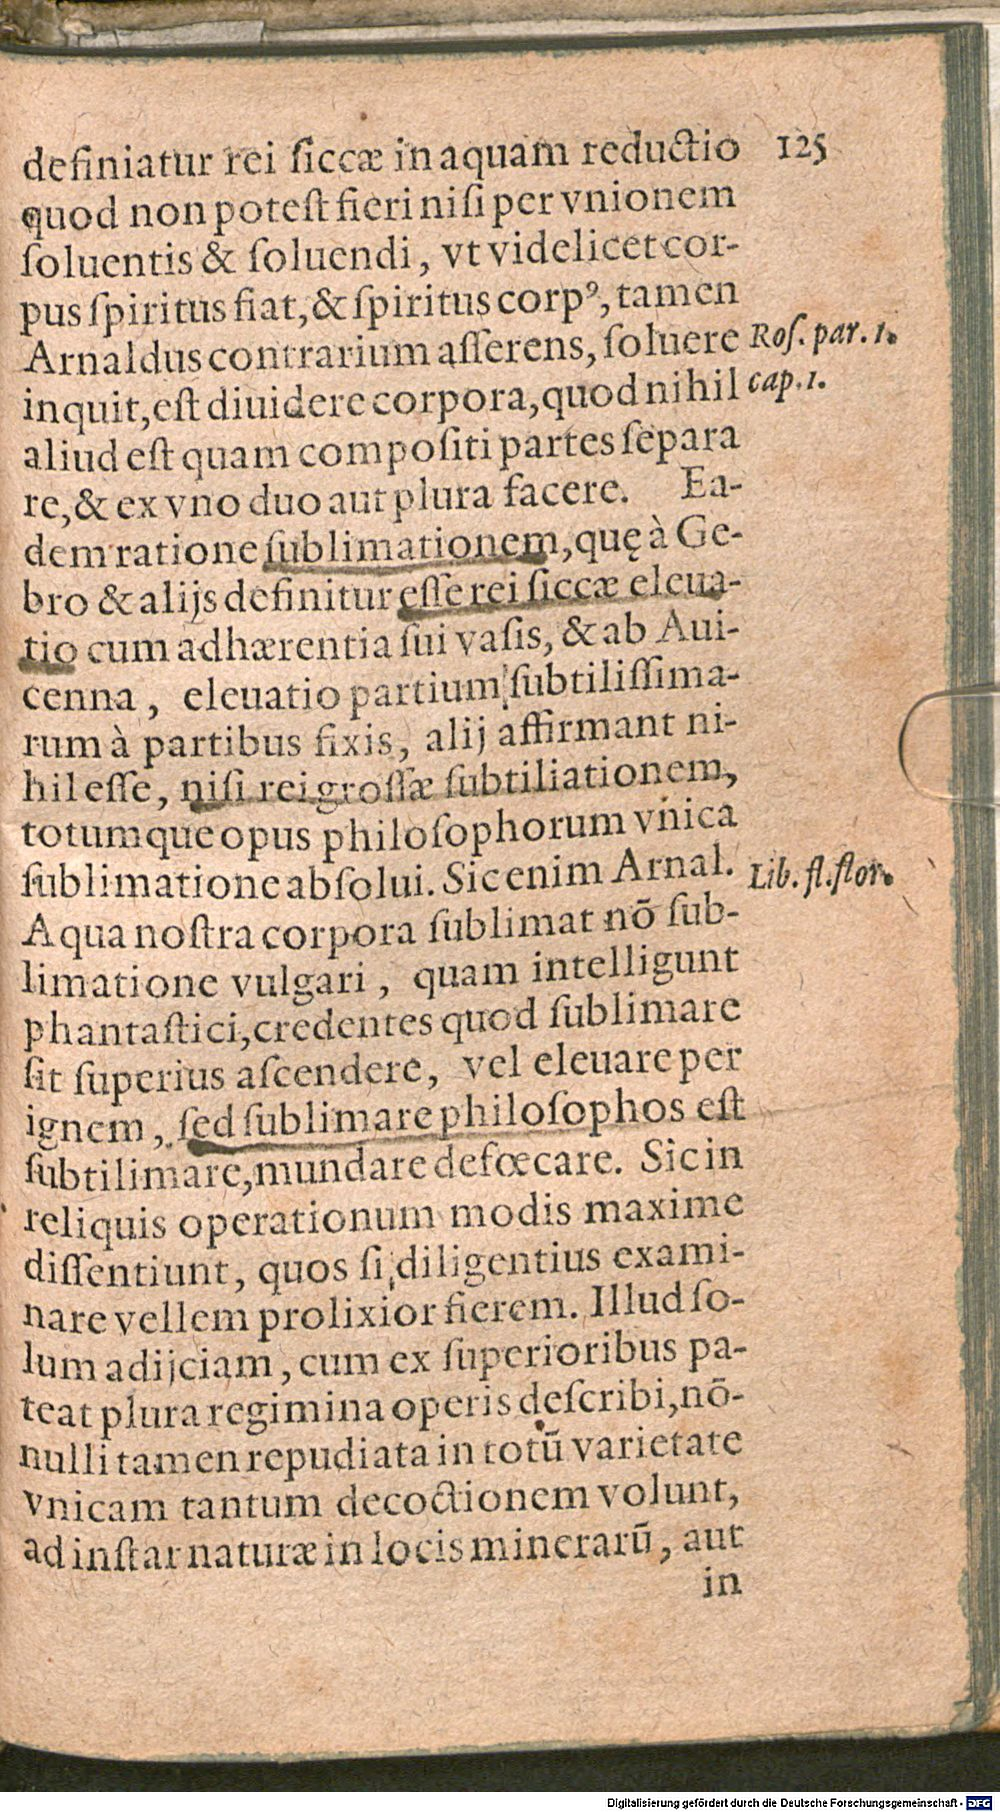 definiatur rei ſiccæ in aquam reductio 125
quod non poteſt fieri niſi per vnionem
ſoluentis & ſoluendi, vt videlicet cor-
pus ſpiritus fiat, & ſpiritus corpꝰ, tamen
Arnaldus contrarium aſſerens, ſoluere Roſ. par. 1.
inquit, eſt diuidere corpora, quod nihil cap. 1.
aliud eſt quam compoſiti partes ſepara
re, & ex vno duo aut plura facere. Ea-
dem ratione ſublimationem, quę à Ge-
bro & alijs definitur eſſe rei ſiccæ eleua-
tio cum adhærentia ſui vaſis, & ab Aui-
cenna, eleuatio partium ſubtiliſſima-
rum à partibus fixis, alij affirmant ni-
hil eſſe, niſi rei groſſæ ſubtiliationem,
totumque opus philoſophorum vnica
ſublimatione abſolui. Sic enim Arnal. Lib. fl. flor.
Aqua noſtra corpora ſublimat nō ſub-
limatione vulgari, quam intelligunt
phantaſtici, credentes quod ſublimare
ſit ſuperius aſcendere, vel eleuare per
ignem, ſed ſublimare philoſophos eſt
ſubtilimare, mundare defœcare. Sic in
reliquis operationum modis maxime
diſſentiunt, quos ſi diligentius exami-
nare vellem prolixior fierem. Illud ſo-
lum adijciam, cum ex ſuperioribus pa-
teat plura regimina operis deſcribi, nō-
nulli tamen repudiata in totū varietate
vnicam tantum decoctionem volunt,
ad inſtar naturæ in locis minerarū, aut
in
Digitalisierung gefördert durch die Deutsche Forschungsgemeinschaft - DFG